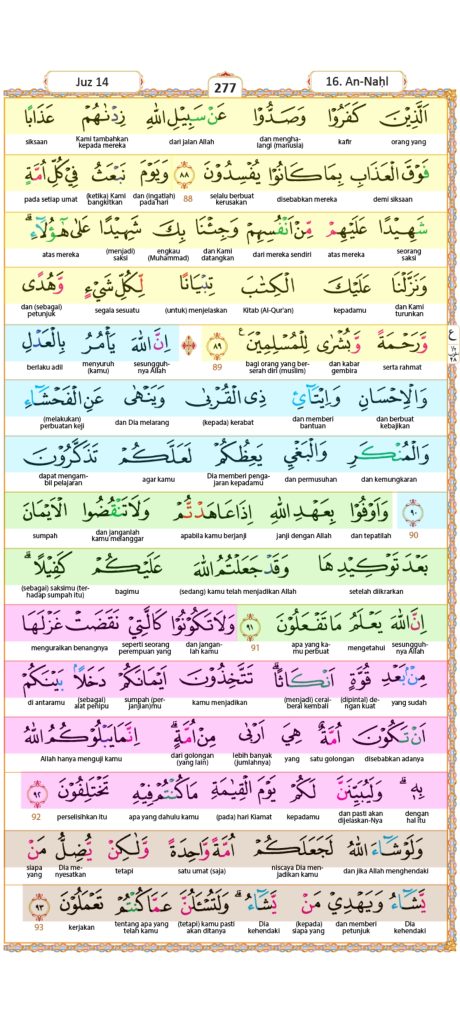 Juz 14
277
16. An-Naḥl
اَلَّذِيْنَ كَفَرُوْا وَصَدُّوْا عَنْ سَبِيْلِ اللّٰهِ زِدْنٰهُمْ عَذَابًا
orang yang kafir dan menghalangi (manusia) dari jalan Allah Kami tambahkan kepada mereka siksaan
فَوْقَ الْعَذَابِ بِمَا كَانُوْا يُفْسِدُوْنَ ۝٨٨ وَيَوْمَ نَبْعَثُ فِيْ كُلِّ اُمَّةٍ
demi siksaan disebabkan mereka selalu berbuat kerusakan 88 dan (ingatlah) pada hari (ketika) Kami bangkitkan pada setiap umat
شَهِيْدًا عَلَيْهِمْ مِّنْ اَنْفُسِهِمْ وَجِئْنَا بِكَ شَهِيْدًا عَلٰى هٰٓؤُلَاۤءِۗ
seorang saksi atas mereka dari mereka sendiri dan Kami datangkan engkau (Muhammad) (menjadi) saksi atas mereka
وَنَزَّلْنَا عَلَيْكَ الْكِتٰبَ تِبْيَانًا لِّكُلِّ شَيْءٍ وَّهُدًى
dan Kami turunkan kepadamu Kitab (Al-Qur'an) (untuk) menjelaskan segala sesuatu dan (sebagai) petunjuk
وَّرَحْمَةً وَّبُشْرٰى لِلْمُسْلِمِيْنَ ࣖ ۝٨٩ ۞ اِنَّ اللّٰهَ يَأْمُرُ بِالْعَدْلِ
serta rahmat dan kabar gembira bagi orang yang berserah diri (muslim) 89 sesungguhnya Allah menyuruh (kamu) berlaku adil
وَالْاِحْسَانِ وَاِيْتَاۤئِ ذِى الْقُرْبٰى وَيَنْهٰى عَنِ الْفَحْشَاۤءِ
dan berbuat kebajikan dan memberi bantuan (kepada) kerabat dan Dia melarang (melakukan) perbuatan keji
وَالْمُنْكَرِ وَالْبَغْيِ يَعِظُكُمْ لَعَلَّكُمْ تَذَكَّرُوْنَ
dan kemungkaran dan permusuhan Dia memberi pengajaran kepadamu agar kamu dapat mengambil pelajaran
۝٩٠ وَاَوْفُوْا بِعَهْدِ اللّٰهِ اِذَا عَاهَدْتُّمْ وَلَا تَنْقُضُوا الْاَيْمَانَ
90 dan tepatilah janji dengan Allah apabila kamu berjanji dan janganlah kamu melanggar sumpah
بَعْدَ تَوْكِيْدِهَا وَقَدْ جَعَلْتُمُ اللّٰهَ عَلَيْكُمْ كَفِيْلًاۗ
setelah diikrarkan (sedang) kamu telah menjadikan Allah bagimu (sebagai) saksimu (terhadap sumpah itu)
اِنَّ اللّٰهَ يَعْلَمُ مَا تَفْعَلُوْنَ ۝٩١ وَلَا تَكُوْنُوْا كَالَّتِيْ نَقَضَتْ غَزْلَهَا
sesungguhnya Allah mengetahui apa yang kamu perbuat 91 dan janganlah kamu seperti seorang perempuan yang menguraikan benangnya
مِنْۢ بَعْدِ قُوَّةٍ اَنْكَاثًاۗ تَتَّخِذُوْنَ اَيْمَانَكُمْ دَخَلًاۢ بَيْنَكُمْ
yang sudah (dipintal) dengan kuat (menjadi) cerai-berai kembali kamu menjadikan sumpah (perjanjian)mu (sebagai) alat penipu di antaramu
اَنْ تَكُوْنَ اُمَّةٌ هِيَ اَرْبٰى مِنْ اُمَّةٍۗ اِنَّمَا يَبْلُوْكُمُ اللّٰهُ
disebabkan adanya satu golongan yang lebih banyak (jumlahnya) dari golongan (yang lain) Allah hanya menguji kamu
بِهٖۗ وَلَيُبَيِّنَنَّ لَكُمْ يَوْمَ الْقِيٰمَةِ مَا كُنْتُمْ فِيْهِ تَخْتَلِفُوْنَ ۝٩٢
dengan hal itu dan pasti akan dijelaskan-Nya kepadamu (pada) hari Kiamat apa yang dahulu kamu perselisihkan itu 92
وَلَوْ شَاۤءَ اللّٰهُ لَجَعَلَكُمْ اُمَّةً وَّاحِدَةً وَّلٰكِنْ يُّضِلُّ مَنْ
dan jika Allah menghendaki niscaya Dia menjadikan kamu satu umat (saja) tetapi Dia menyesatkan siapa yang
يَّشَاۤءُ وَيَهْدِيْ مَنْ يَّشَاۤءُۗ وَلَتُسْـَٔلُنَّ عَمَّا كُنْتُمْ تَعْمَلُوْنَ ۝٩٣
Dia kehendaki dan memberi petunjuk (kepada) siapa yang Dia kehendaki (tetapi) kamu pasti akan ditanya tentang apa yang telah kamu kerjakan 93